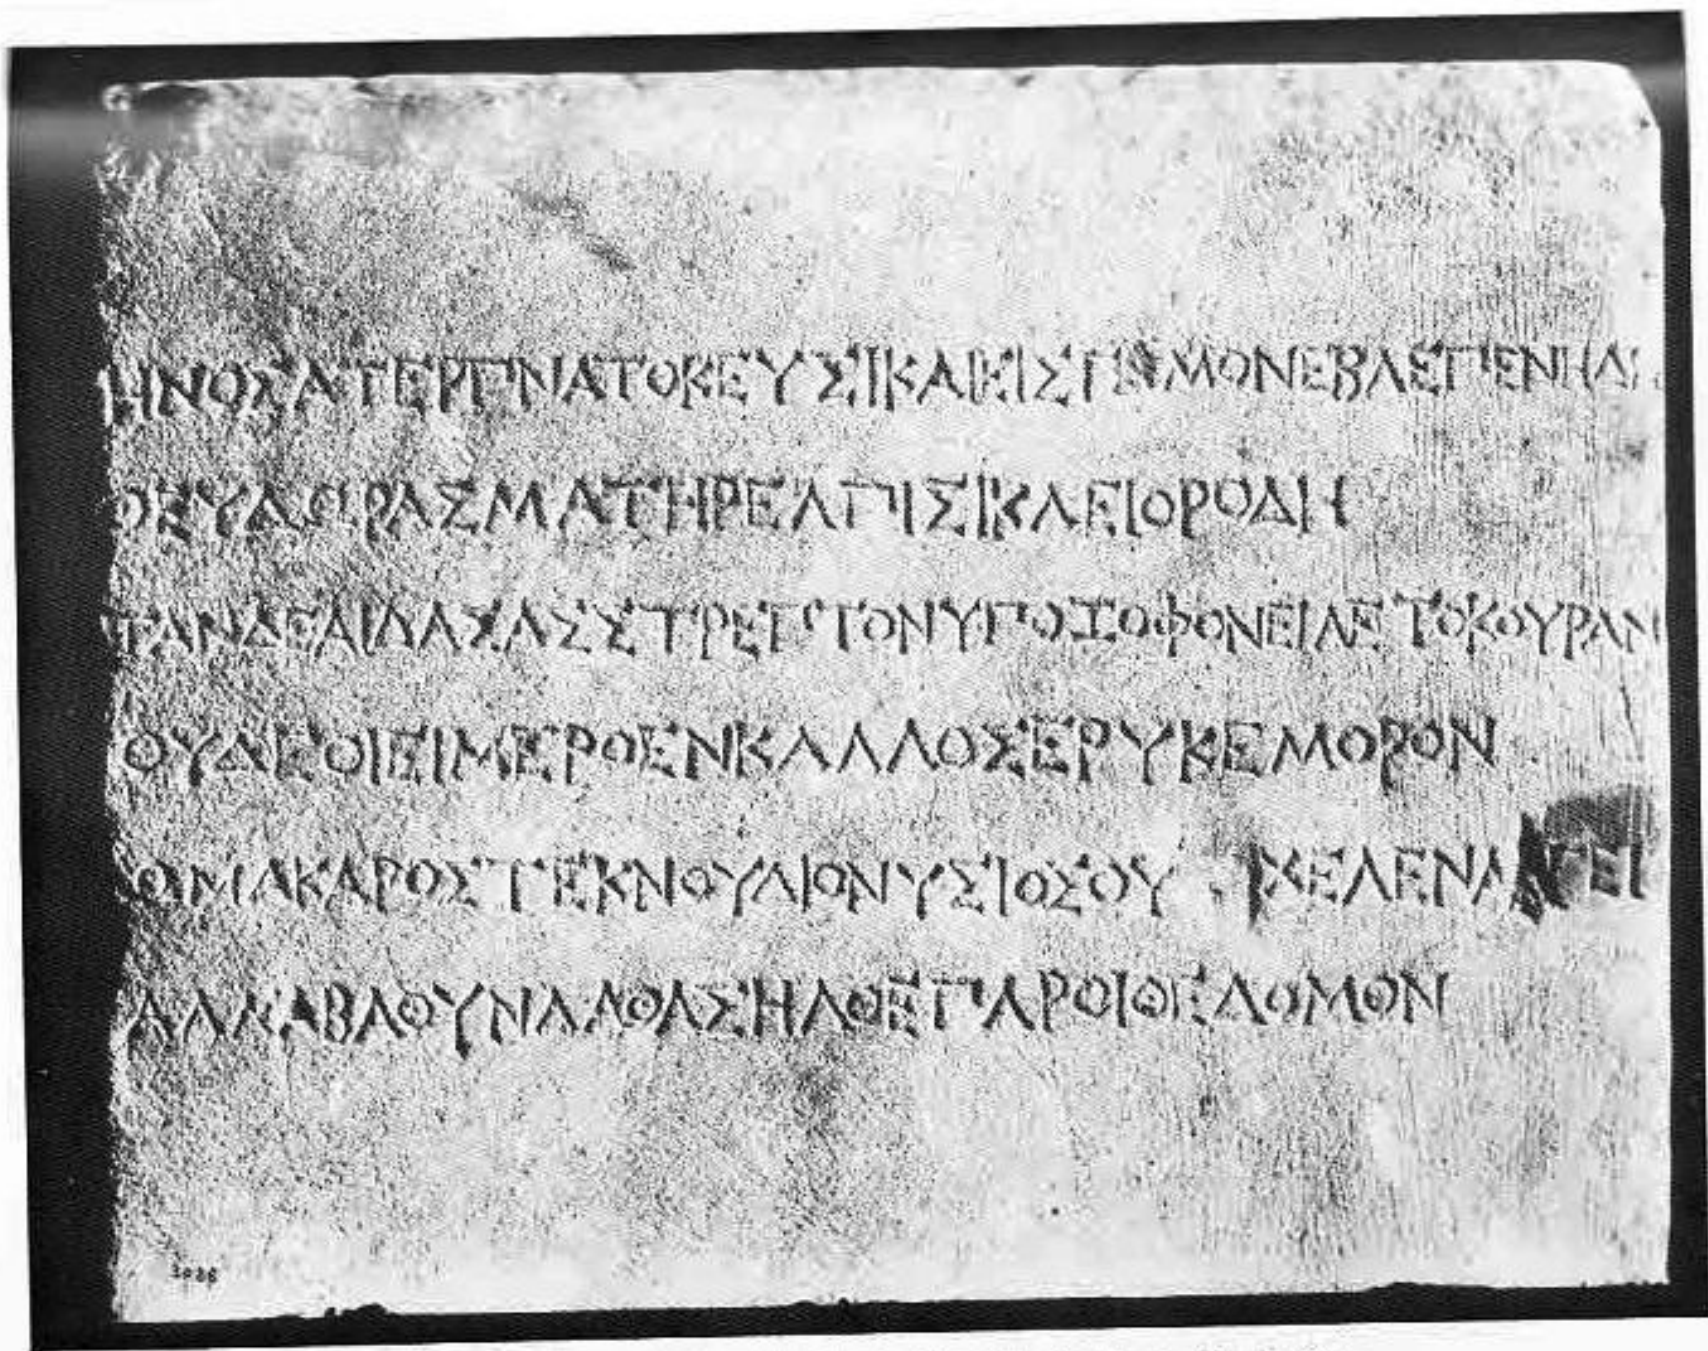 ΗΝΟΣΑΤΕΡΠΝΑΤΟΚΕΥΣΙΚΑΙΕΙΣΠΕΝΜΟΝΕΒΛΕΠΕΝΗΔΙ
ΟΣΥΔΩΡΑΣΜΑΤΗΡΕΛΠΙΣΙΚΛΕΙΟΡΟΔΗ
ΤΑΝΔΕΑΙΔΑΣΑΣΣΤΡΕΠΤΟΝΥΠΟΖΟΦΟΝΕΙΛΕΤΟΚΟΥΡΑΝ
ΟΥΔΕΟΙΕΙΜΕΡΟΕΝΚΑΛΛΟΣΕΡΥΚΕΜΟΡΟΝ
ΩΜΑΚΑΡΟΣΤΕΚΝΟΥΔΙΟΝΥΣΙΟΣΟΥ ΧΕΛΕΝΑΛΓΕΙ
ΑΛΛΑΒΛΘΥΝΑΛΘΑΣΗΛΘΕΠΑΡΟΙΘΕΔΟΜΟΝ
3026